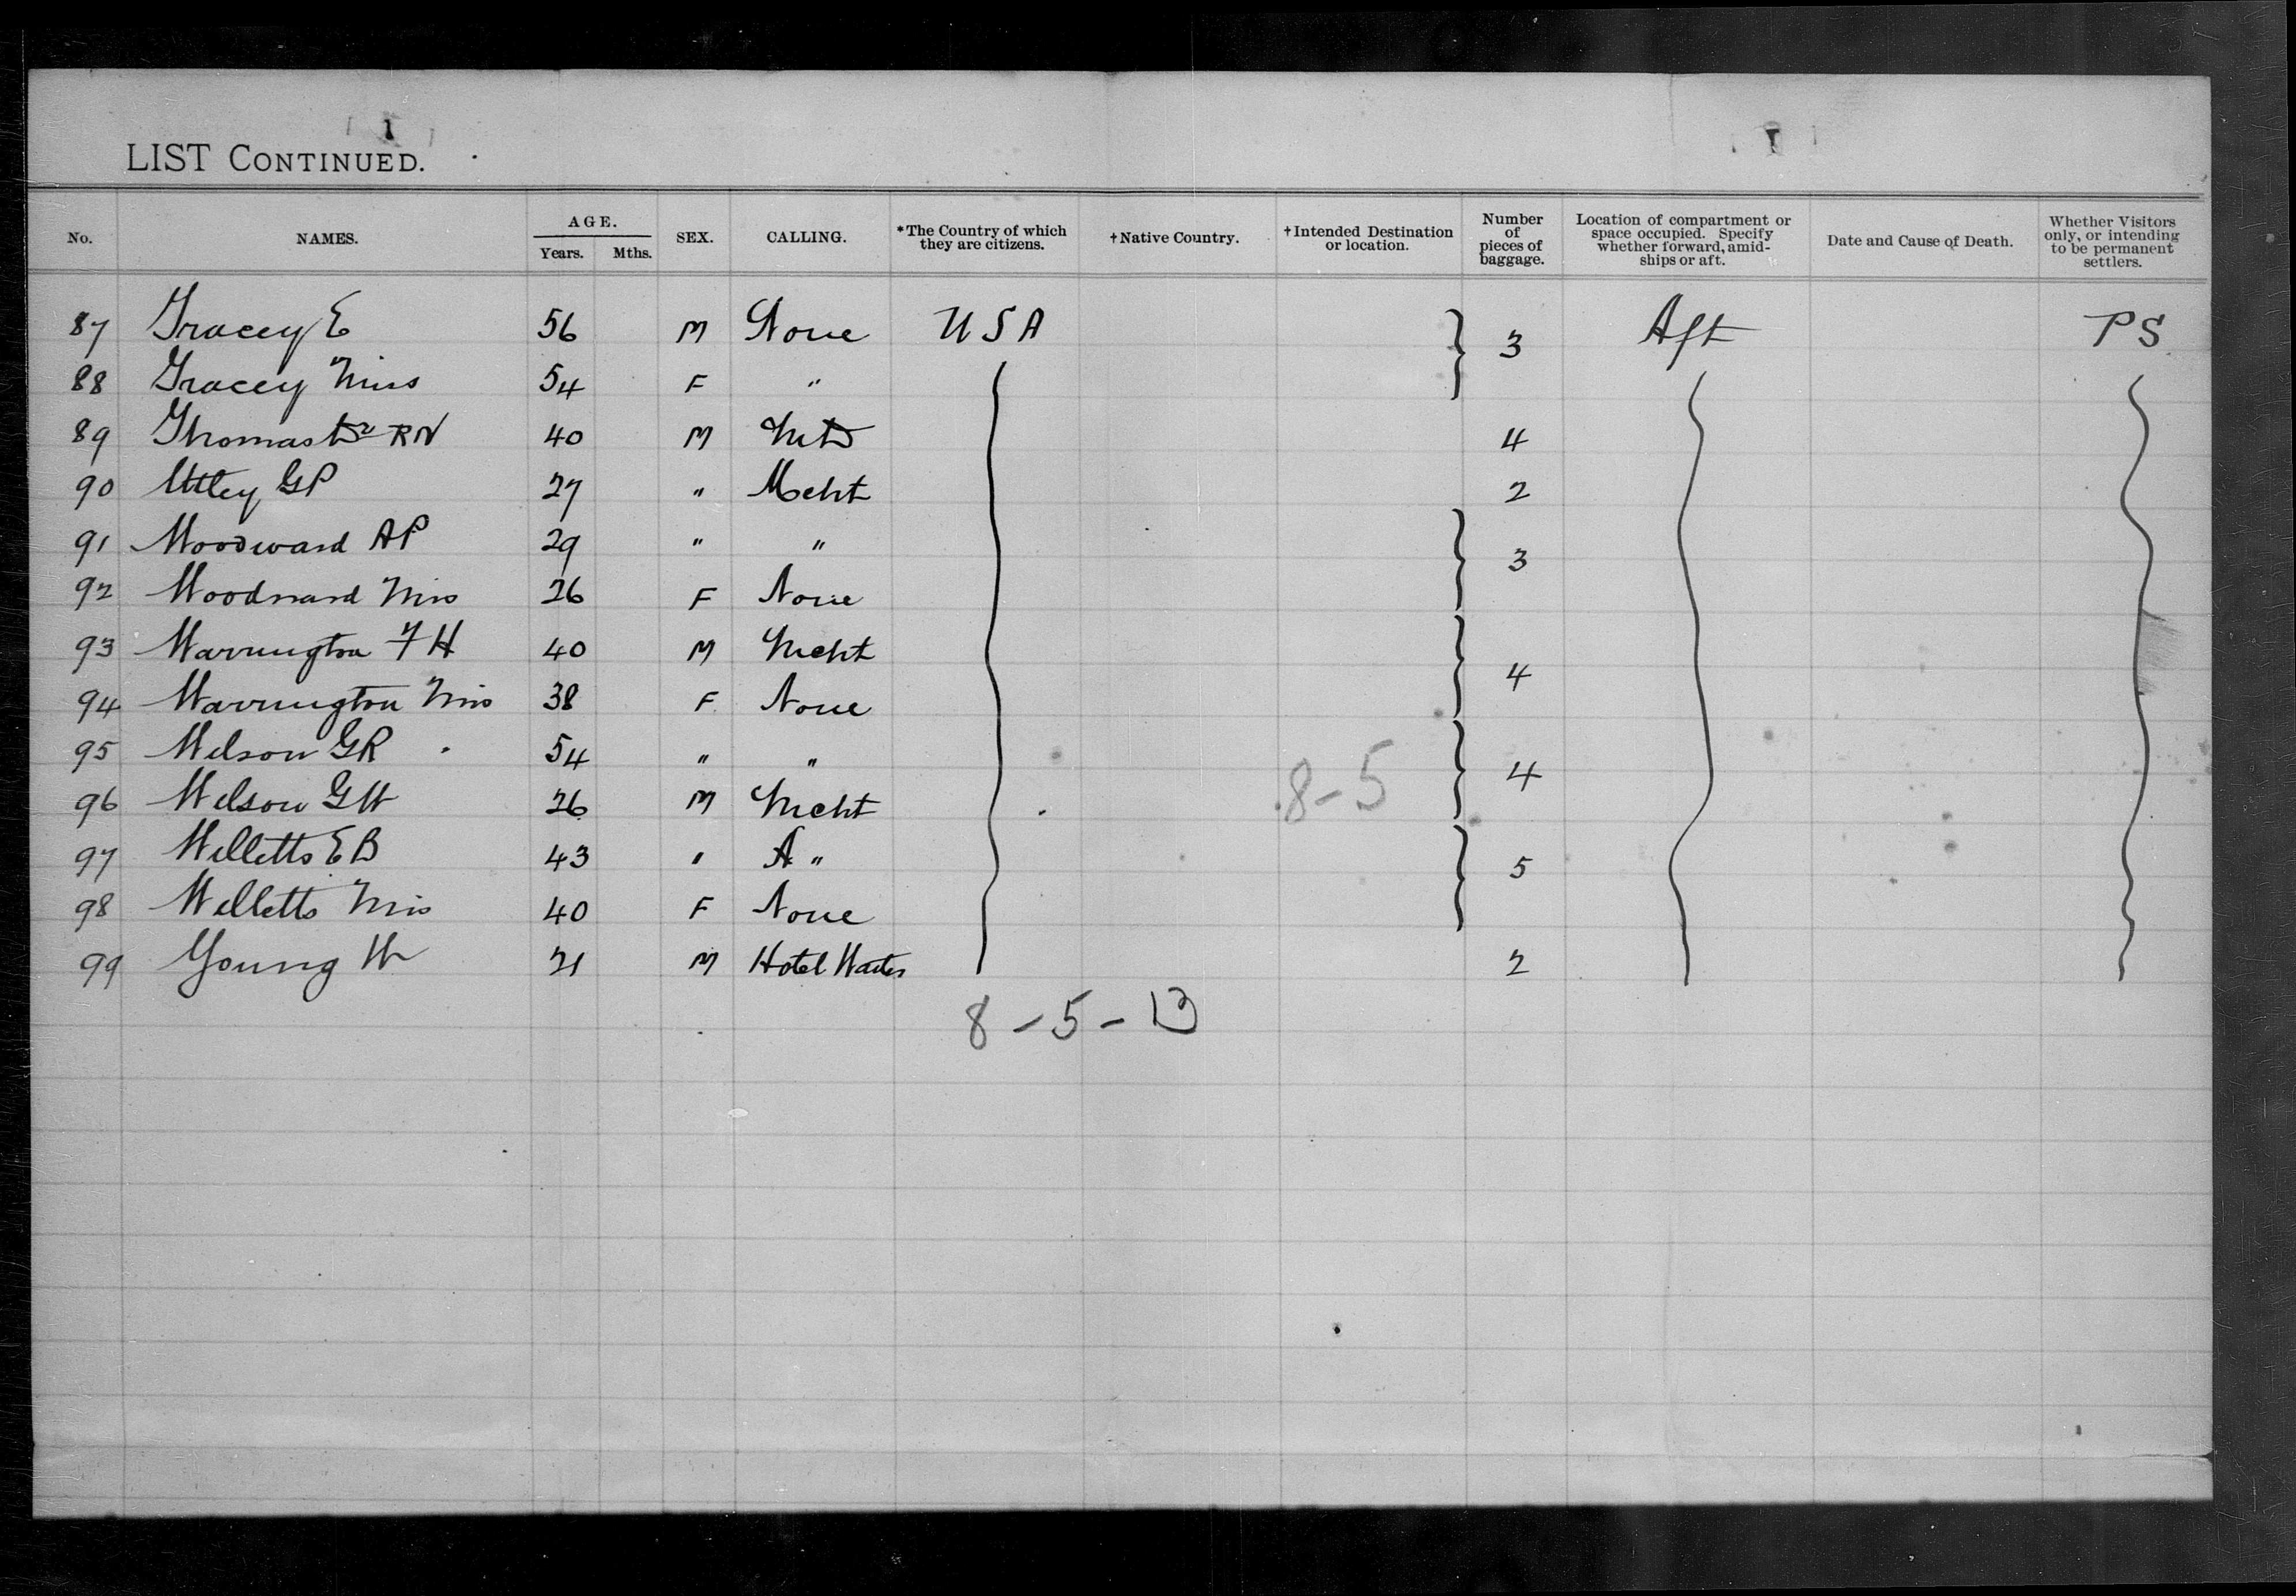 LIST CONTINUED.
No. NAMES. AGE. Years. Mths. SEX. CALLING. *The Country of which they are citizens. †Native Country. †Intended Destination or location. Number of pieces of baggage. Location of compartment or space occupied. Specify whether forward, amidships or aft. Date and Cause of Death. Whether Visitors only, or intending to be permanent settlers.
87 Tracey E 56 M None USA 3 Aft PS
88 Tracey Miss 54 F "
89 Thomas Dr RN 40 M MD 4
90 Uttley GP 27 " Mcht 2
91 Woodward AP 29 " " 3
92 Woodward Mrs 26 F None
93 Warrington FH 40 M Mcht 4
94 Warrington Mrs 38 F None
95 Wilson GR 54 " " 4
96 Wilson GW 26 M Mcht
8-5
97 Willetts EB 43 " A " 5
98 Willetts Mrs 40 F None
99 Young W 21 M Hotel Waiter 2
8-5-13